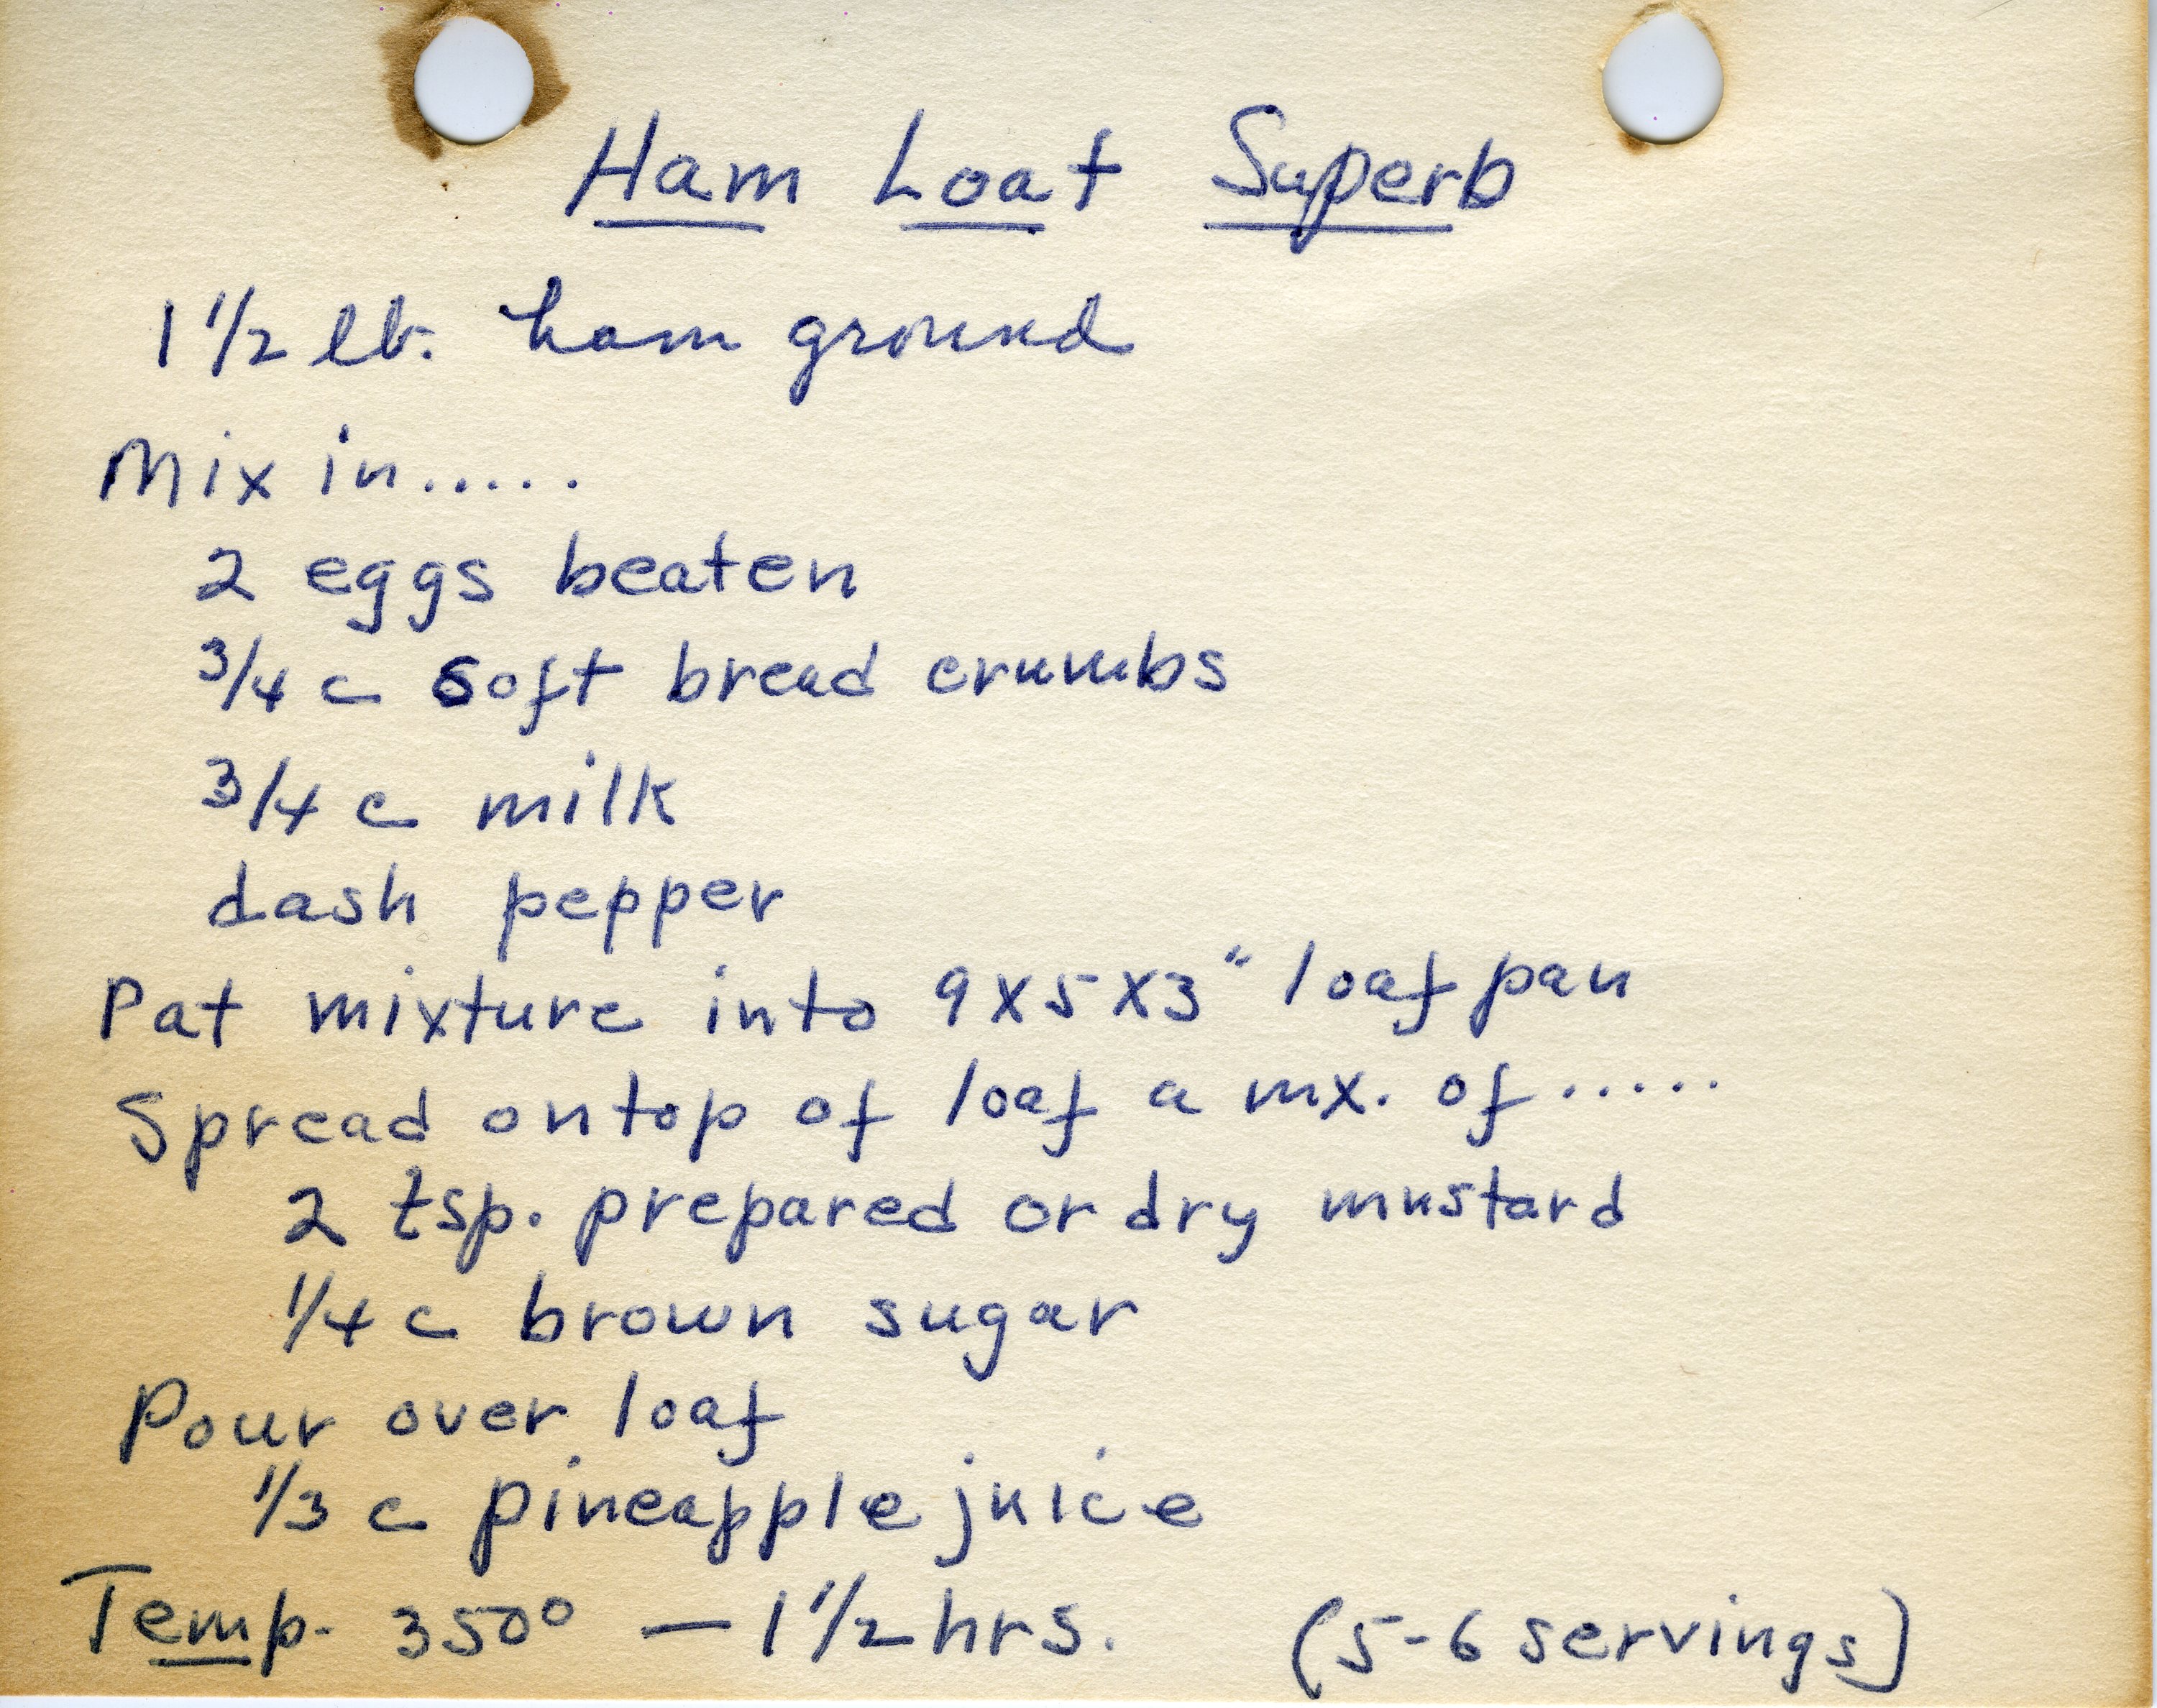 Ham Loaf Superb
1 1/2 lb. ham ground
Mix in.....
2 eggs beaten
3/4 c soft bread crumbs
3/4 c milk
dash pepper
Pat mixture into 9x5x3" loaf pan
Spread on top of loaf a mx. of.....
2 tsp. prepared or dry mustard
1/4 c brown sugar
Pour over loaf
1/3 c pineapple juice
Temp. 350° — 1 1/2 hrs. (5-6 servings)